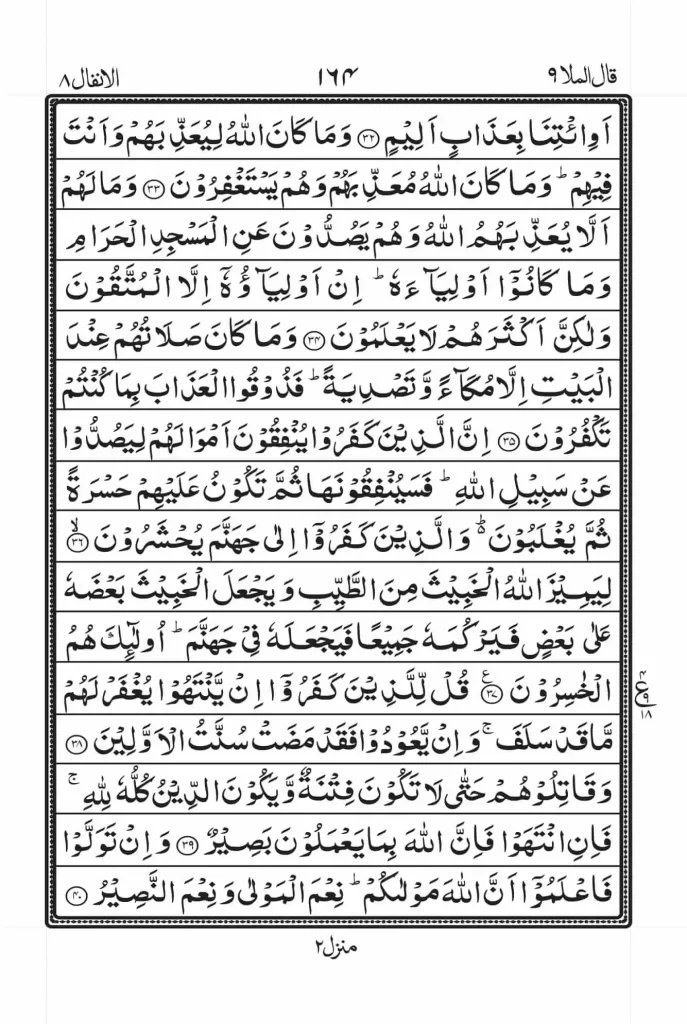 قال الملا ۹ ۱۶۴ الانفال ۸
اَوِ ائْتِنَا بِعَذَابٍ اَلِيْمٍ ﴿۳۲﴾ وَمَا كَانَ اللّٰهُ لِيُعَذِّبَهُمْ وَاَنْتَ
فِيْهِمْ ؕ وَمَا كَانَ اللّٰهُ مُعَذِّبَهُمْ وَهُمْ يَسْتَغْفِرُوْنَ ﴿۳۳﴾ وَمَا لَهُمْ
اَلَّا يُعَذِّبَهُمُ اللّٰهُ وَهُمْ يَصُدُّوْنَ عَنِ الْمَسْجِدِ الْحَرَامِ
وَمَا كَانُوْۤا اَوْلِيَآءَهٗ ؕ اِنْ اَوْلِيَآؤُهٗۤ اِلَّا الْمُتَّقُوْنَ
وَلٰكِنَّ اَكْثَرَهُمْ لَا يَعْلَمُوْنَ ﴿۳۴﴾ وَمَا كَانَ صَلَاتُهُمْ عِنْدَ
الْبَيْتِ اِلَّا مُكَآءً وَّتَصْدِيَةً ؕ فَذُوْقُوا الْعَذَابَ بِمَا كُنْتُمْ
تَكْفُرُوْنَ ﴿۳۵﴾ اِنَّ الَّذِيْنَ كَفَرُوْا يُنْفِقُوْنَ اَمْوَالَهُمْ لِيَصُدُّوْا
عَنْ سَبِيْلِ اللّٰهِ ؕ فَسَيُنْفِقُوْنَهَا ثُمَّ تَكُوْنُ عَلَيْهِمْ حَسْرَةً
ثُمَّ يُغْلَبُوْنَ ۬ؕ وَالَّذِيْنَ كَفَرُوْۤا اِلٰى جَهَنَّمَ يُحْشَرُوْنَ ﴿ۙ۳۶﴾
لِيَمِيْزَ اللّٰهُ الْخَبِيْثَ مِنَ الطَّيِّبِ وَيَجْعَلَ الْخَبِيْثَ بَعْضَهٗ
عَلٰى بَعْضٍ فَيَرْكُمَهٗ جَمِيْعًا فَيَجْعَلَهٗ فِيْ جَهَنَّمَ ؕ اُولٰٓئِكَ هُمُ
الْخٰسِرُوْنَ ﴿۳۷﴾ ع قُلْ لِّلَّذِيْنَ كَفَرُوْۤا اِنْ يَّنْتَهُوْا يُغْفَرْ لَهُمْ
۴ ع ۹ ۱۸
مَّا قَدْ سَلَفَ ۚ وَاِنْ يَّعُوْدُوْا فَقَدْ مَضَتْ سُنَّتُ الْاَوَّلِيْنَ ﴿۳۸﴾
وَقَاتِلُوْهُمْ حَتّٰى لَا تَكُوْنَ فِتْنَةٌ وَّيَكُوْنَ الدِّيْنُ كُلُّهٗ لِلّٰهِ ۚ
فَاِنِ انْتَهَوْا فَاِنَّ اللّٰهَ بِمَا يَعْمَلُوْنَ بَصِيْرٌ ﴿۳۹﴾ وَاِنْ تَوَلَّوْا
فَاعْلَمُوْۤا اَنَّ اللّٰهَ مَوْلٰىكُمْ ؕ نِعْمَ الْمَوْلٰى وَنِعْمَ النَّصِيْرُ ﴿۴۰﴾
منزل ۲